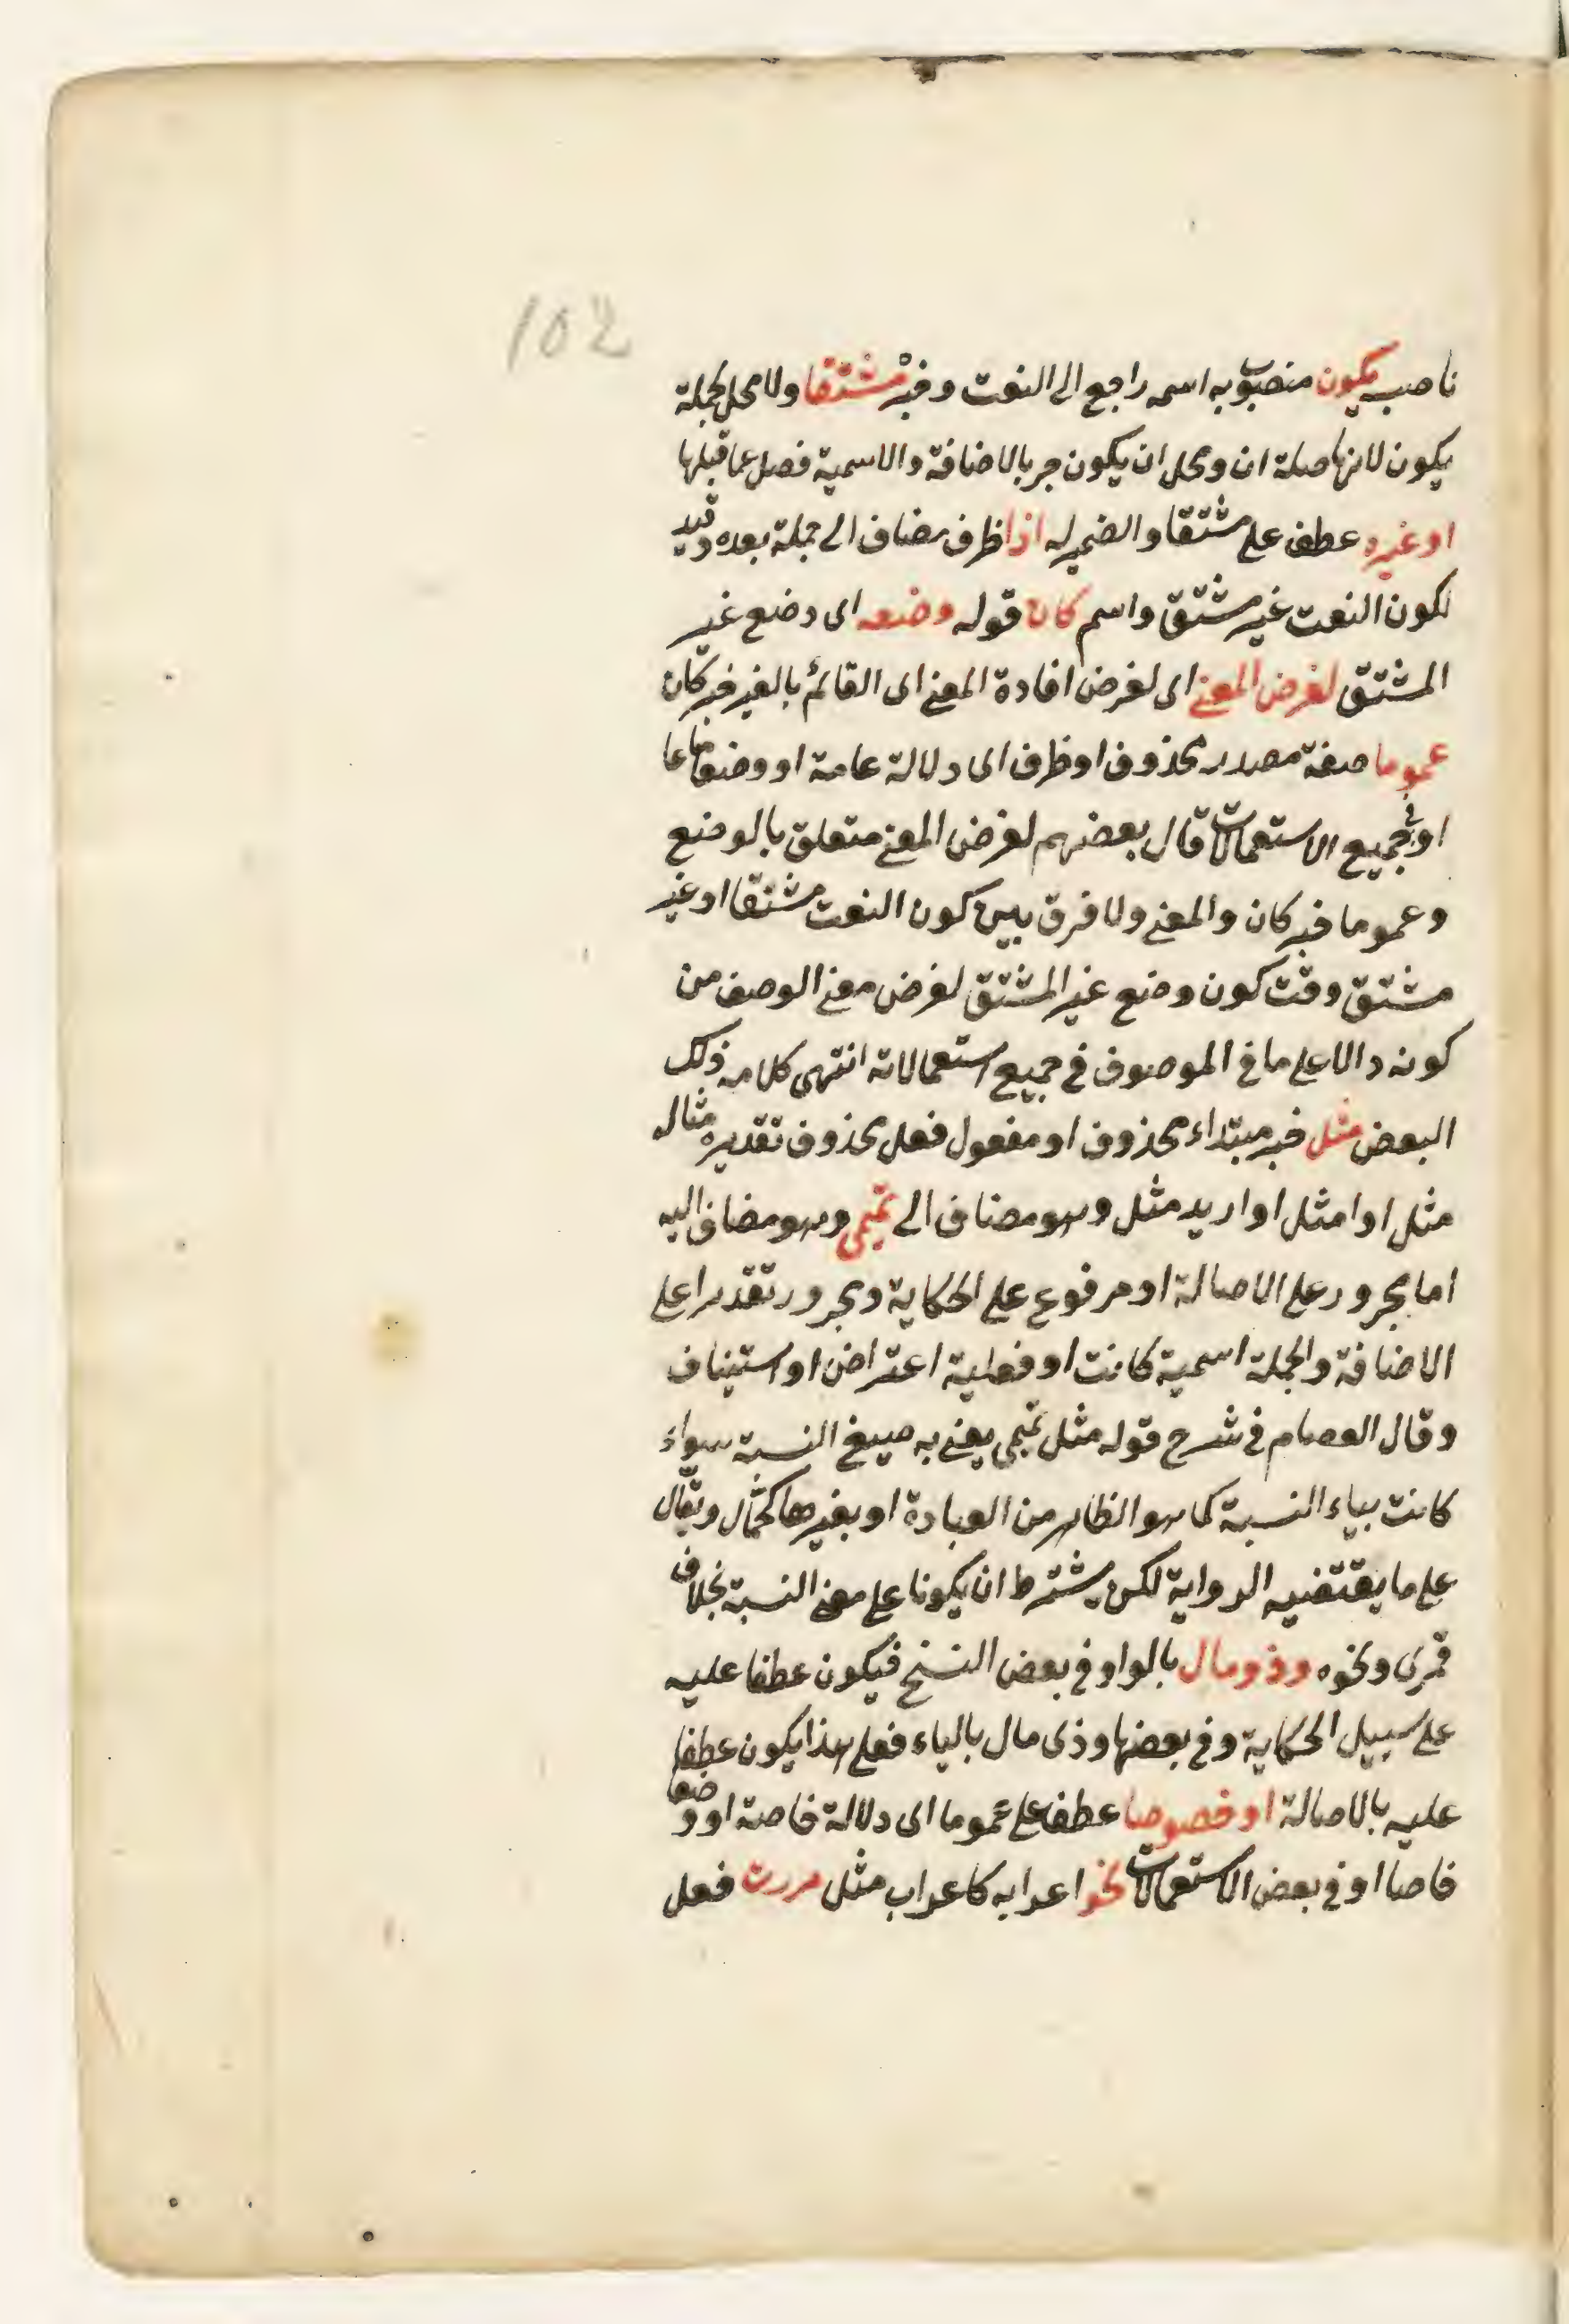 102
ناصب يكون منصوب به اسمه راجع الى النعت وخبره مشتقا ولا محل لجملة
يكون لانها صلة ان ومحل ان يكون جر بالاضافة والاسمية فصل عما قبلها
او غيره عطف على مشتقا والضمير له اذا ظرف مضاف الى جملة بعده وقيد
لكون النعت غير مشتق واسم كان قوله وضعه اى وضع غير
المشتق لغرض المعنى اى لغرض افادة المعنى اى القائم بالغير خبر كان
عموما صفة مصدر محذوف او ظرف اى دلالة عامة او وضعا عاما
او فى جميع الاستعمالات قال بعضهم لغرض المعنى متعلق بالوضع
وعموما خبر كان والمعنى ولا فرق بين كون النعت مشتقا او غير
مشتق وقت كون وضع غير المشتق لغرض معنى الوصف من
كونه دالا على ما فى الموصوف فى جميع استعمالاته انتهى كلامه ذلك
البعض مثل خبر مبتداء محذوف او مفعول فعل محذوف تقديره مثاله
مثل او امثل او اريد مثل وهو مضاف الى تميمى وهو مضاف اليه
اما مجرور على الاصالة او مرفوع على الحكاية ومجرور تقديرا على
الاضافة والجملة اسمية كانت او فعلية اعتراض او استيناف
وقال العصام فى شرح قوله مثل تميمى يعنى به صيغ النسبة سواء
كانت بياء النسبة كما هو الظاهر من العبادة او بغيرها كجمال وبقال
على ما يقتضيه الرواية لكن يشترط ان يكونا على معنى النسبة بخلاف
قمرى ونحوه وذو مال بالواو فى بعض النسخ فيكون عطفا عليه
على سبيل الحكاية وفى بعضها وذى مال بالياء فعلى هذا يكون عطفا
عليه بالاصالة او خصوصا عطف على عموما اى دلالة خاصة او وضعا
خاصا او فى بعض الاستعمالات نحو اعرابه كاعراب مثل مررت فعل